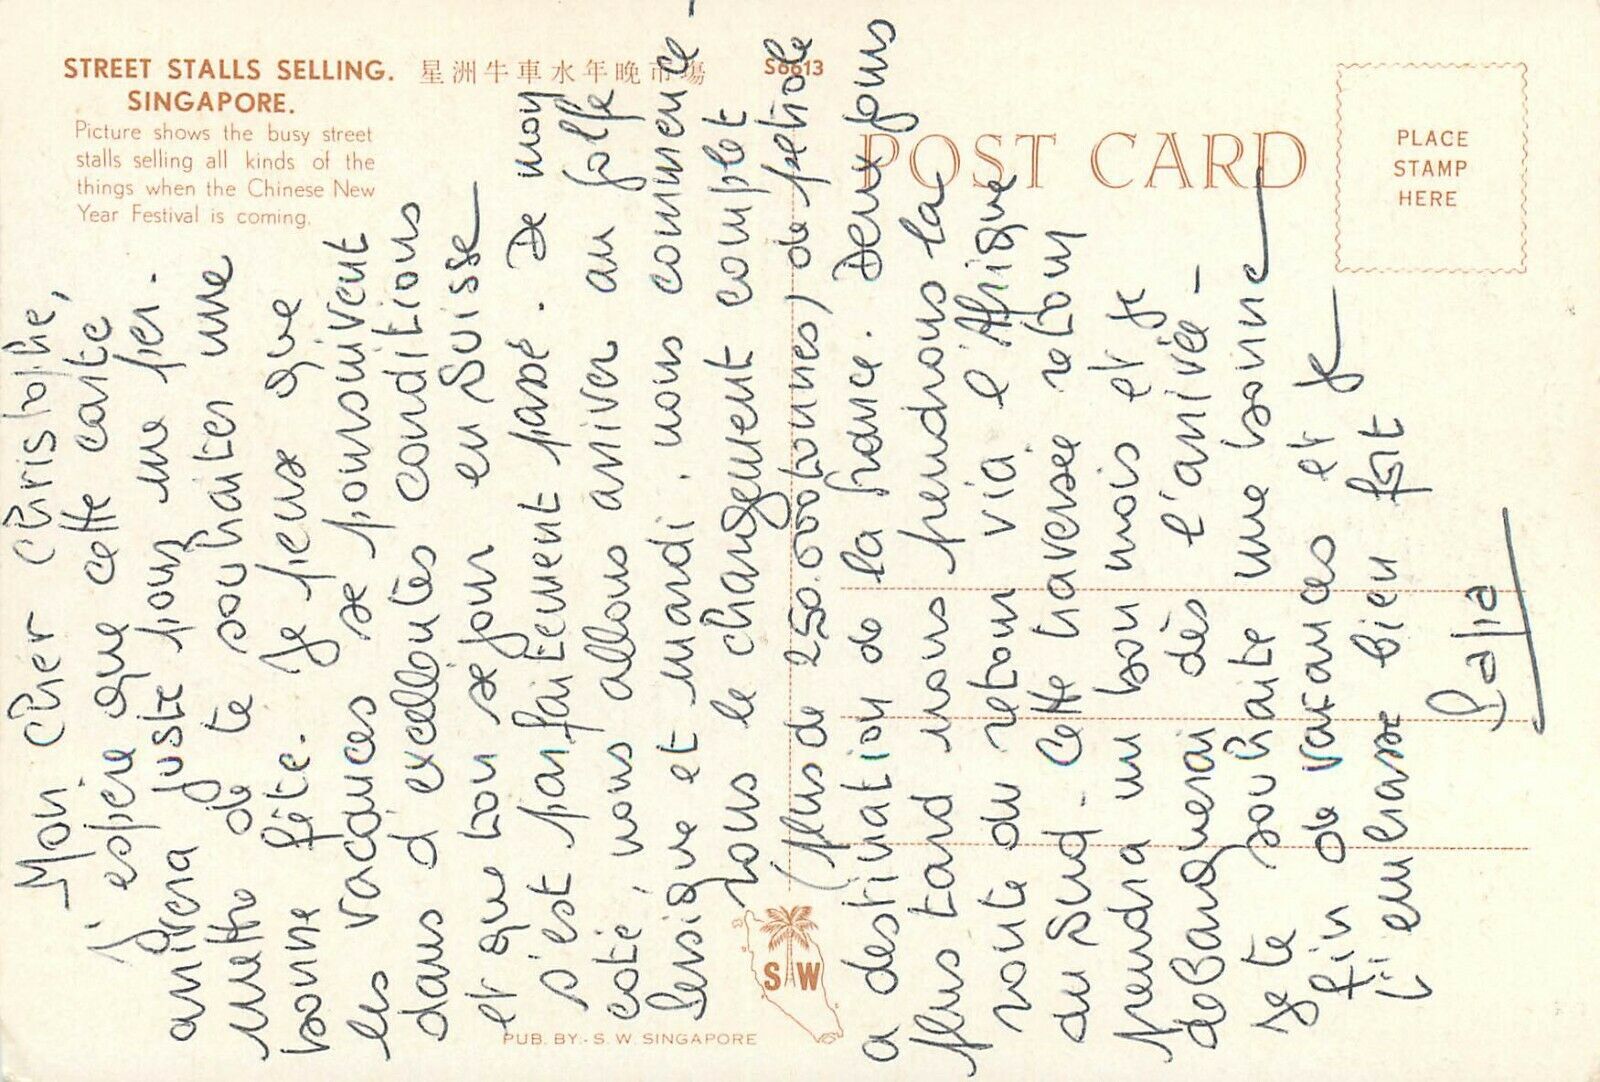 STREET STALLS SELLING.
SINGAPORE.
星洲牛車水年晚市場
S6613
Picture shows the busy street
stalls selling all kinds of the
things when the Chinese New
Year Festival is coming.
POST CARD
PLACE
STAMP
HERE
Mon cher Christophe,
J'espère que cette carte
arrivera juste pour une fer.
metto de te souhaiter une
bonne fête. Je pense que
les vacances se poursuivent
dans d'excellentes conditions
et que ton sejour en Suisse
s'est parfaitement passé. De mon
coté, nous allons arriver au golfe
Persique et mardi. nous commence-
rons le chargement complet
(plus de 250.000 tonnes) de petrole
a destination de la france. Deux jours
plus tard nous prendrons la
route du retour via l'Afrique
du Sud. Cette traversée retour
prendra un bon mois et je
debarquerai dès l'arrivée -
Je te souhaite une bonne
fin de vacances et je
t'embrasse bien fort
Papa
S W
PUB. BY:- S. W. SINGAPORE